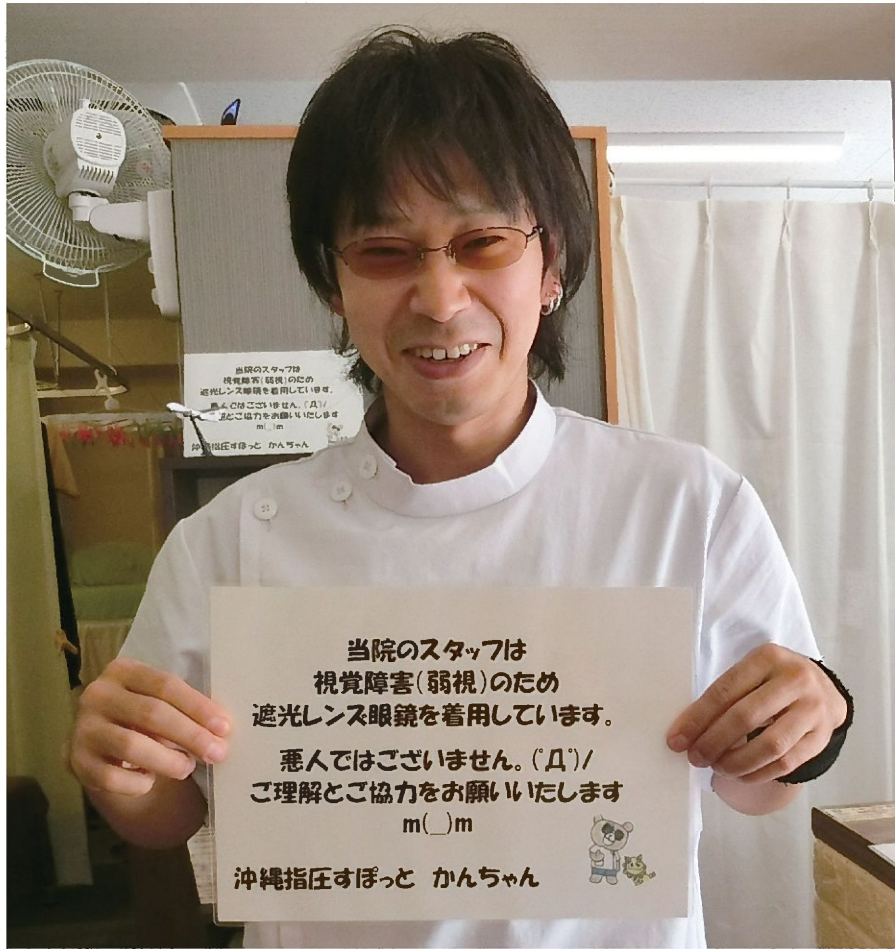 当院のスタッフは
視覚障害(弱視)のため
遮光レンズ眼鏡を着用しています。
悪人ではございません。(ﾟДﾟ)/
とご協力をお願いいたします
m(_)m
沖縄指圧すぽっと かんちゃん
当院のスタッフは
視覚障害(弱視)のため
遮光レンズ眼鏡を着用しています。
悪人ではございません。(ﾟДﾟ)/
ご理解とご協力をお願いいたします
m(_)m
沖縄指圧すぽっと かんちゃん